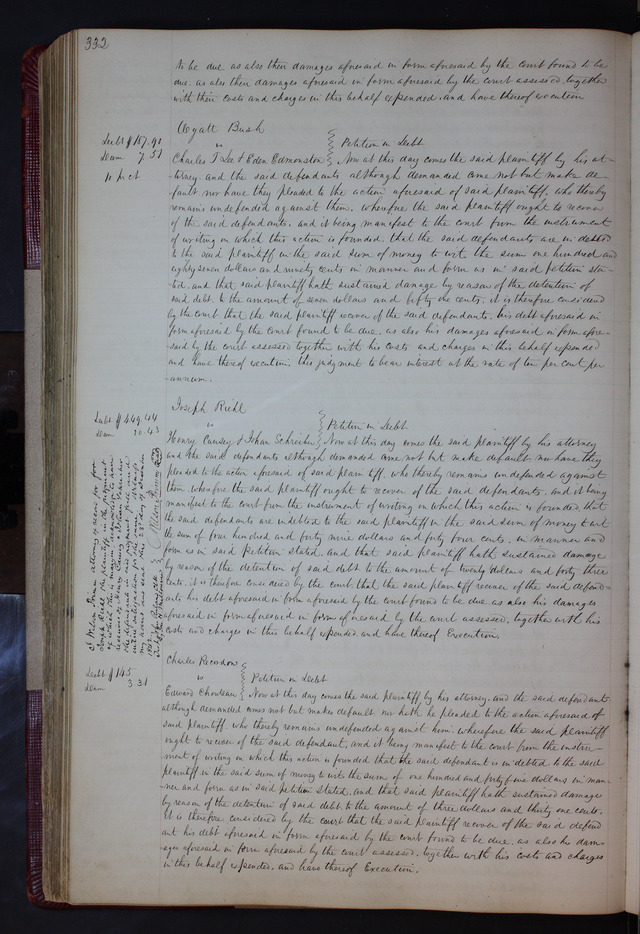 332
to be due as also their damages aforesaid in form aforesaid by the court found to be
due. as also their damages aforesaid in form aforesaid by the court assessed, together
with their costs and charges in this behalf expended. and have thereof execution
Wyatt Bush
vs
Petition in Debt
Debt $187.90
Dam 7.51
10 pr ct
Charles J Lee & Eden Edmonston Now at this day comes the said plaintiff by his at-
torney and the said defendants although demanded come not but make de-
fault nor have they pleaded to the action aforesaid of said plaintiff, who thereby
remains undefended against them. wherefore the said plaintiff ought to recover
of the said defendants. and it being manifest to the court from the instrument
of writing on which this action is founded that the said defendants are in debted
to the said plaintiff in the said sum of money to wit the sum one hundred and
eighty seven dollars and ninety cents in manner and form as in said petition sta-
ted. and that said plaintiff hath sustained damage by reason of the detention of
said debt. to the amount of seven dollars and fifty one cents. it is therefore considered
by the court that the said plaintiff recover of the said defendants. his debt aforesaid in
form aforesaid by the court found to be due. as also his damages aforesaid in form afore-
said by the court assessed together with his costs and charges in this behalf expended
and have thereof execution. this judgment to bear interest at the rate of ten per cent per
annum.
Joseph Riehl
vs
Petition in Debt
Debt $449.44
Dam 20.43
Henry Causey & Johan Schreiber Now at this day comes the said plaintiff by his attorney
and the said defendants although demanded come not but make default nor have they
pleaded to the action aforesaid of said plaintiff. who thereby remains undefended against
them. wherefore the said plaintiff ought to recover of the said defendants. and it being
manifest to the court from the instrument of writing on which this action is founded. that
the said defendants are indebted to the said plaintiff in the said sum of money to wit
the sum of four hundred and forty nine dollars and forty four cents. in manner and
form as in said petition stated. and that said plaintiff hath sustained damage
by reason of the detention of said debt to the amount of twenty dollars and forty three
cents. it is therefore considered by the court that the said plaintiff recover of the said defend-
ants his debt aforesaid in form aforesaid by the court found to be due as also his damages
aforesaid in form aforesaid in form aforesaid by the court assessed, together with his
costs and charges in this behalf expended and have thereof Execution.
I Wilson Primm attorney of record for
Joseph Riehl the plaintiff in the judgment
Charles Picodon
vs
Petition in Debt
Debt $145
Dam 3.31
Edward Choudeau Now at this day comes the said plaintiff by his attorney. and the said defendant
although demanded comes not but makes default nor hath he pleaded to the action aforesaid of
said plaintiff. who thereby remains undefended against him. wherefore the said plaintiff
ought to recover of the said defendant. and it being manifest to the court from the instru-
ment of writing on which this action is founded that the said defendant is indebted to the said
plaintiff in the said sum of money to wit the sum of one hundred and forty five dollars in man-
ner and form as in said petition stated. and that said plaintiff hath sustained damage
by reason of the detention of said debt. to the amount of three dollars and thirty one cents.
It is therefore considered by the court that the said plaintiff recover of the said defend
ant his debt aforesaid in form aforesaid by the court found to be due. as also his dam-
ages aforesaid in form aforesaid by the court assessed. together with his costs and charges
in this behalf expended. and have thereof Execution.